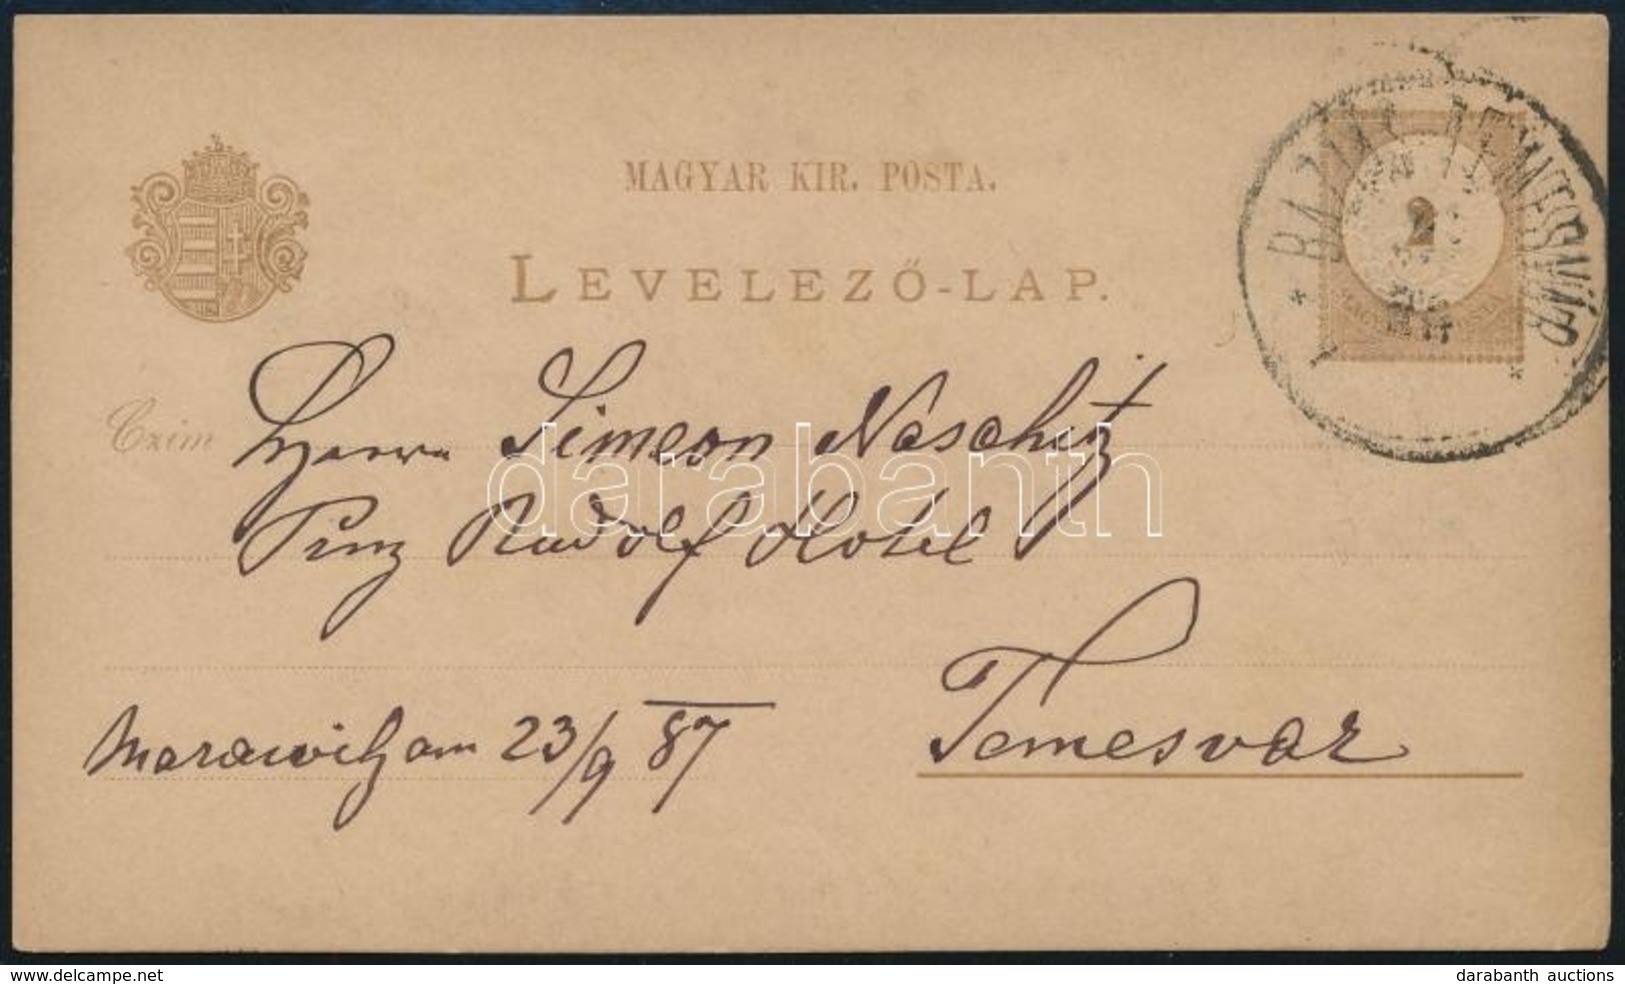 MAGYAR KIR. POSTA.
LEVELEZŐ-LAP.
BAZIÁS TEMESVÁR
2
Czim
Herrn Simeon Naschitz
Prinz Rudolf Hotel
Temesvar
am 23/9 87
darabanth
delcampe.net
darabanth auctions